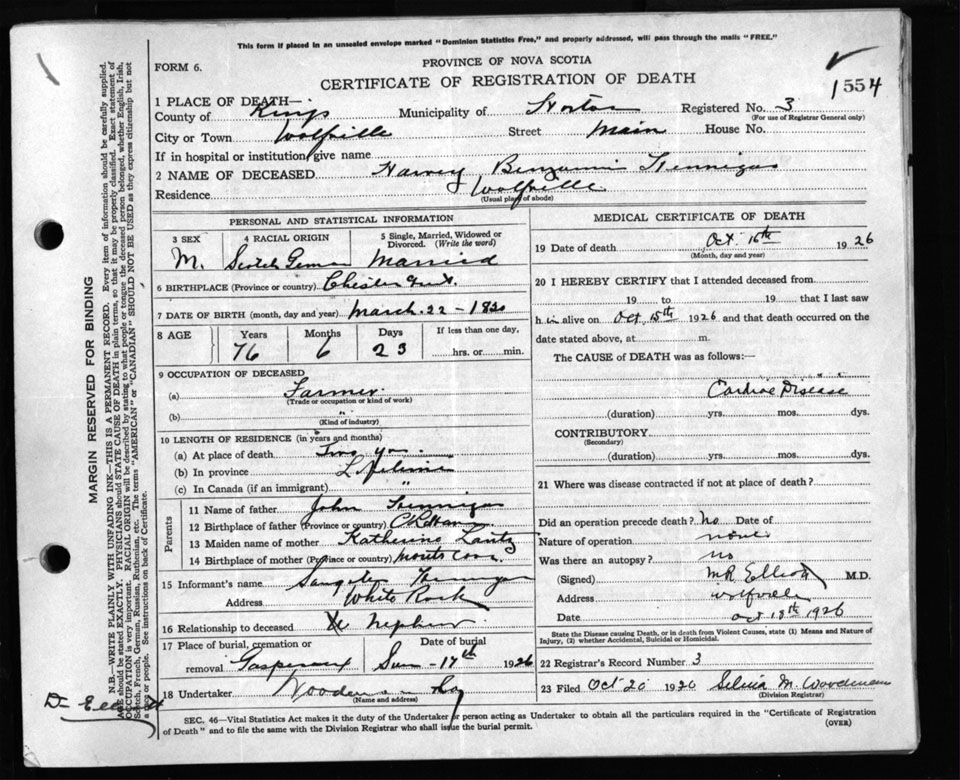 This form if placed in an unsealed envelope marked "Dominion Statistics Free," and properly addressed, will pass through the mails "FREE."
FORM 6.
PROVINCE OF NOVA SCOTIA
CERTIFICATE OF REGISTRATION OF DEATH
1554
1 PLACE OF DEATH—
County of Kings Municipality of Horton Registered No. 3
(For use of Registrar General only)
City or Town Wolfville Street Main House No.
If in hospital or institution, give name
2 NAME OF DECEASED Harvey Benjamin
Residence Wolfville
(Usual place of abode)
PERSONAL AND STATISTICAL INFORMATION
3 SEX 4 RACIAL ORIGIN 5 Single, Married, Widowed or Divorced. (Write the word)
M. Scotch German Married
6 BIRTHPLACE (Province or country) Chester
7 DATE OF BIRTH (month, day and year) March 22 – 1850
8 AGE Years Months Days If less than one day,
76 6 23 hrs. or min.
9 OCCUPATION OF DECEASED
(a) Farmer
(Trade or occupation or kind of work)
(b) "
(Kind of industry)
10 LENGTH OF RESIDENCE (in years and months)
(a) At place of death Two yrs
(b) In province Lifetime
(c) In Canada (if an immigrant) "
Parents
11 Name of father John
12 Birthplace of father (Province or country)
13 Maiden name of mother Katherine Lantz
14 Birthplace of mother (Province or country)
15 Informant's name
Address White Rock
16 Relationship to deceased Nephew
17 Place of burial, cremation or removal Gaspereaux Date of burial Sun – 17th 1926
18 Undertaker Woodman
(Name and address)
MEDICAL CERTIFICATE OF DEATH
19 Date of death Oct. 16th 1926
(Month, day and year)
20 I HEREBY CERTIFY that I attended deceased from
19 to 19 that I last saw
him alive on Oct 15th 1926 and that death occurred on the
date stated above, at m.
The CAUSE of DEATH was as follows:—
Cardiac Disease
(duration) yrs. mos. dys.
CONTRIBUTORY
(Secondary)
(duration) yrs. mos. dys.
21 Where was disease contracted if not at place of death?
Did an operation precede death? no Date of
Nature of operation none
Was there an autopsy? no
(Signed) M R Elliott M.D.
Address Wolfville
Date Oct 18th 1926
State the Disease causing Death, or in death from Violent Causes, state (1) Means and Nature of Injury, (2) whether Accidental, Suicidal or Homicidal.
22 Registrar's Record Number 3
23 Filed Oct 20 1926 M. Woodman
(Division Registrar)
SEC. 46—Vital Statistics Act makes it the duty of the Undertaker or person acting as Undertaker to obtain all the particulars required in the "Certificate of Registration
of Death" and to file the same with the Division Registrar who shall issue the burial permit.
(OVER)
MARGIN RESERVED FOR BINDING
N.B.—WRITE PLAINLY WITH UNFADING INK—THIS IS A PERMANENT RECORD. Every item of information should be carefully supplied.
AGE should be stated EXACTLY. PHYSICIANS should STATE CAUSE OF DEATH in plain terms, so that it may be properly classified. Exact statement of
OCCUPATION is very important. RACIAL ORIGIN will be described by stating to what people or tongue the deceased person belonged, whether English, Irish,
Scotch, French, German, Russian, Ruthenian, etc. The terms "AMERICAN" or "CANADIAN" SHOULD NOT BE USED as they express citizenship but not
a race or people. See instructions on back of Certificate.
Dr Elliott